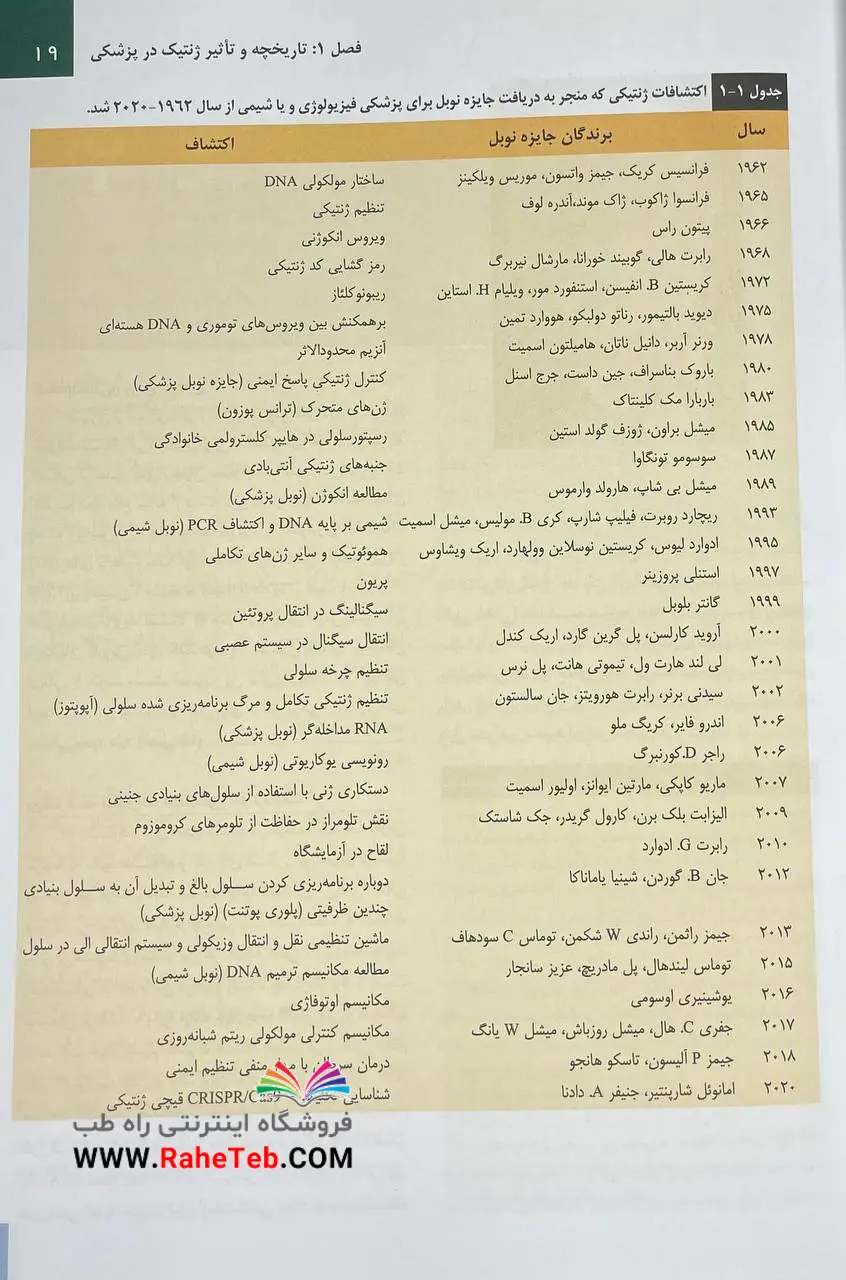 ۱۹
فصل ۱: تاریخچه و تأثیر ژنتیک در پزشکی
جدول ۱-۱ اکتشافات ژنتیکی که منجر به دریافت جایزه نوبل برای پزشکی فیزیولوژی و یا شیمی از سال ۱۹۶۲-۲۰۲۰ شد.
سال برندگان جایزه نوبل اکتشاف
۱۹۶۲ فرانسیس کریک، جیمز واتسون، موریس ویلکینز ساختار مولکولی DNA
۱۹۶۵ فرانسوا ژاکوب، ژاک موند،آندره لوف تنظیم ژنتیکی
۱۹۶۶ پیتون راس ویروس انکوژنی
۱۹۶۸ رابرت هالی، گوبیند خورانا، مارشال نیربرگ رمز گشایی کد ژنتیکی
۱۹۷۲ کریستین B. انفیسن، استنفورد مور، ویلیام H. استاین ریبونوکلئاز
۱۹۷۵ دیوید بالتیمور، رناتو دولبکو، هووارد تمین برهمکنش بین ویروس‌های توموری و DNA هسته‌ای
۱۹۷۸ ورنر آربر، دانیل ناتان، هامیلتون اسمیت آنزیم محدودالاثر
۱۹۸۰ باروک بناسراف، جین داست، جرج اسنل کنترل ژنتیکی پاسخ ایمنی (جایزه نوبل پزشکی)
۱۹۸۳ باربارا مک کلینتاک ژن‌های متحرک (ترانس پوزون)
۱۹۸۵ میشل براون، ژوزف گولد استین رسپتورسلولی در هایپر کلسترولمی خانوادگی
۱۹۸۷ سوسومو تونگاوا جنبه‌های ژنتیکی آنتی‌بادی
۱۹۸۹ میشل بی شاپ، هارولد وارموس مطالعه انکوژن (نوبل پزشکی)
۱۹۹۳ ریچارد روبرت، فیلیپ شارپ، کری B. مولیس، میشل اسمیت شیمی بر پایه DNA و اکتشاف PCR (نوبل شیمی)
۱۹۹۵ ادوارد لیوس، کریستین نوسلاین وولهارد، اریک ویشاوس هموئوتیک و سایر ژن‌های تکاملی
۱۹۹۷ استنلی پروزینر پریون
۱۹۹۹ گانتر بلوبل سیگنالینگ در انتقال پروتئین
۲۰۰۰ آروید کارلسن، پل گرین گارد، اریک کندل انتقال سیگنال در سیستم عصبی
۲۰۰۱ لی لند هارت ول، تیموتی هانت، پل نرس تنظیم چرخه سلولی
۲۰۰۲ سیدنی برنر، رابرت هورویتز، جان سالستون تنظیم ژنتیکی تکامل و مرگ برنامه‌ریزی شده سلولی (آپوپتوز)
۲۰۰۶ اندرو فایر، کریگ ملو RNA مداخله‌گر (نوبل پزشکی)
۲۰۰۶ راجر D.کورنبرگ رونویسی یوکاریوتی (نوبل شیمی)
۲۰۰۷ ماریو کاپکی، مارتین ایوانز، اولیور اسمیت دستکاری ژنی با استفاده از سلول‌های بنیادی جنینی
۲۰۰۹ الیزابت بلک برن، کارول گریدر، جک شاستک نقش تلومراز در حفاظت از تلومرهای کروموزوم
۲۰۱۰ رابرت G. ادوارد لقاح در آزمایشگاه
۲۰۱۲ جان B. گوردن، شینیا یاماناکا دوباره برنامه‌ریزی کردن سلول بالغ و تبدیل آن به سلول بنیادی
چندین ظرفیتی (پلوری پوتنت) (نوبل پزشکی)
۲۰۱۳ جیمز راثمن، راندی W شکمن، توماس C سودهاف ماشین تنظیمی نقل و انتقال وزیکولی و سیستم انتقالی الی در سلول
۲۰۱۵ توماس لیندهال، پل مادریچ، عزیز سانجار مطالعه مکانیسم ترمیم DNA (نوبل شیمی)
۲۰۱۶ یوشینیری اوسومی مکانیسم اوتوفاژی
۲۰۱۷ جفری C. هال، میشل روزباش، میشل W یانگ مکانیسم کنترلی مولکولی ریتم شبانه‌روزی
۲۰۱۸ جیمز P آلیسون، تاسکو هانجو درمان سرطان با منفی تنظیم ایمنی
۲۰۲۰ امانوئل شارپنتیر، جنیفر A. دادنا شناسایی CRISPR/Cas9 قیچی ژنتیکی
فروشگاه اینترنتی راه طب
WWW.RaheTeb.COM